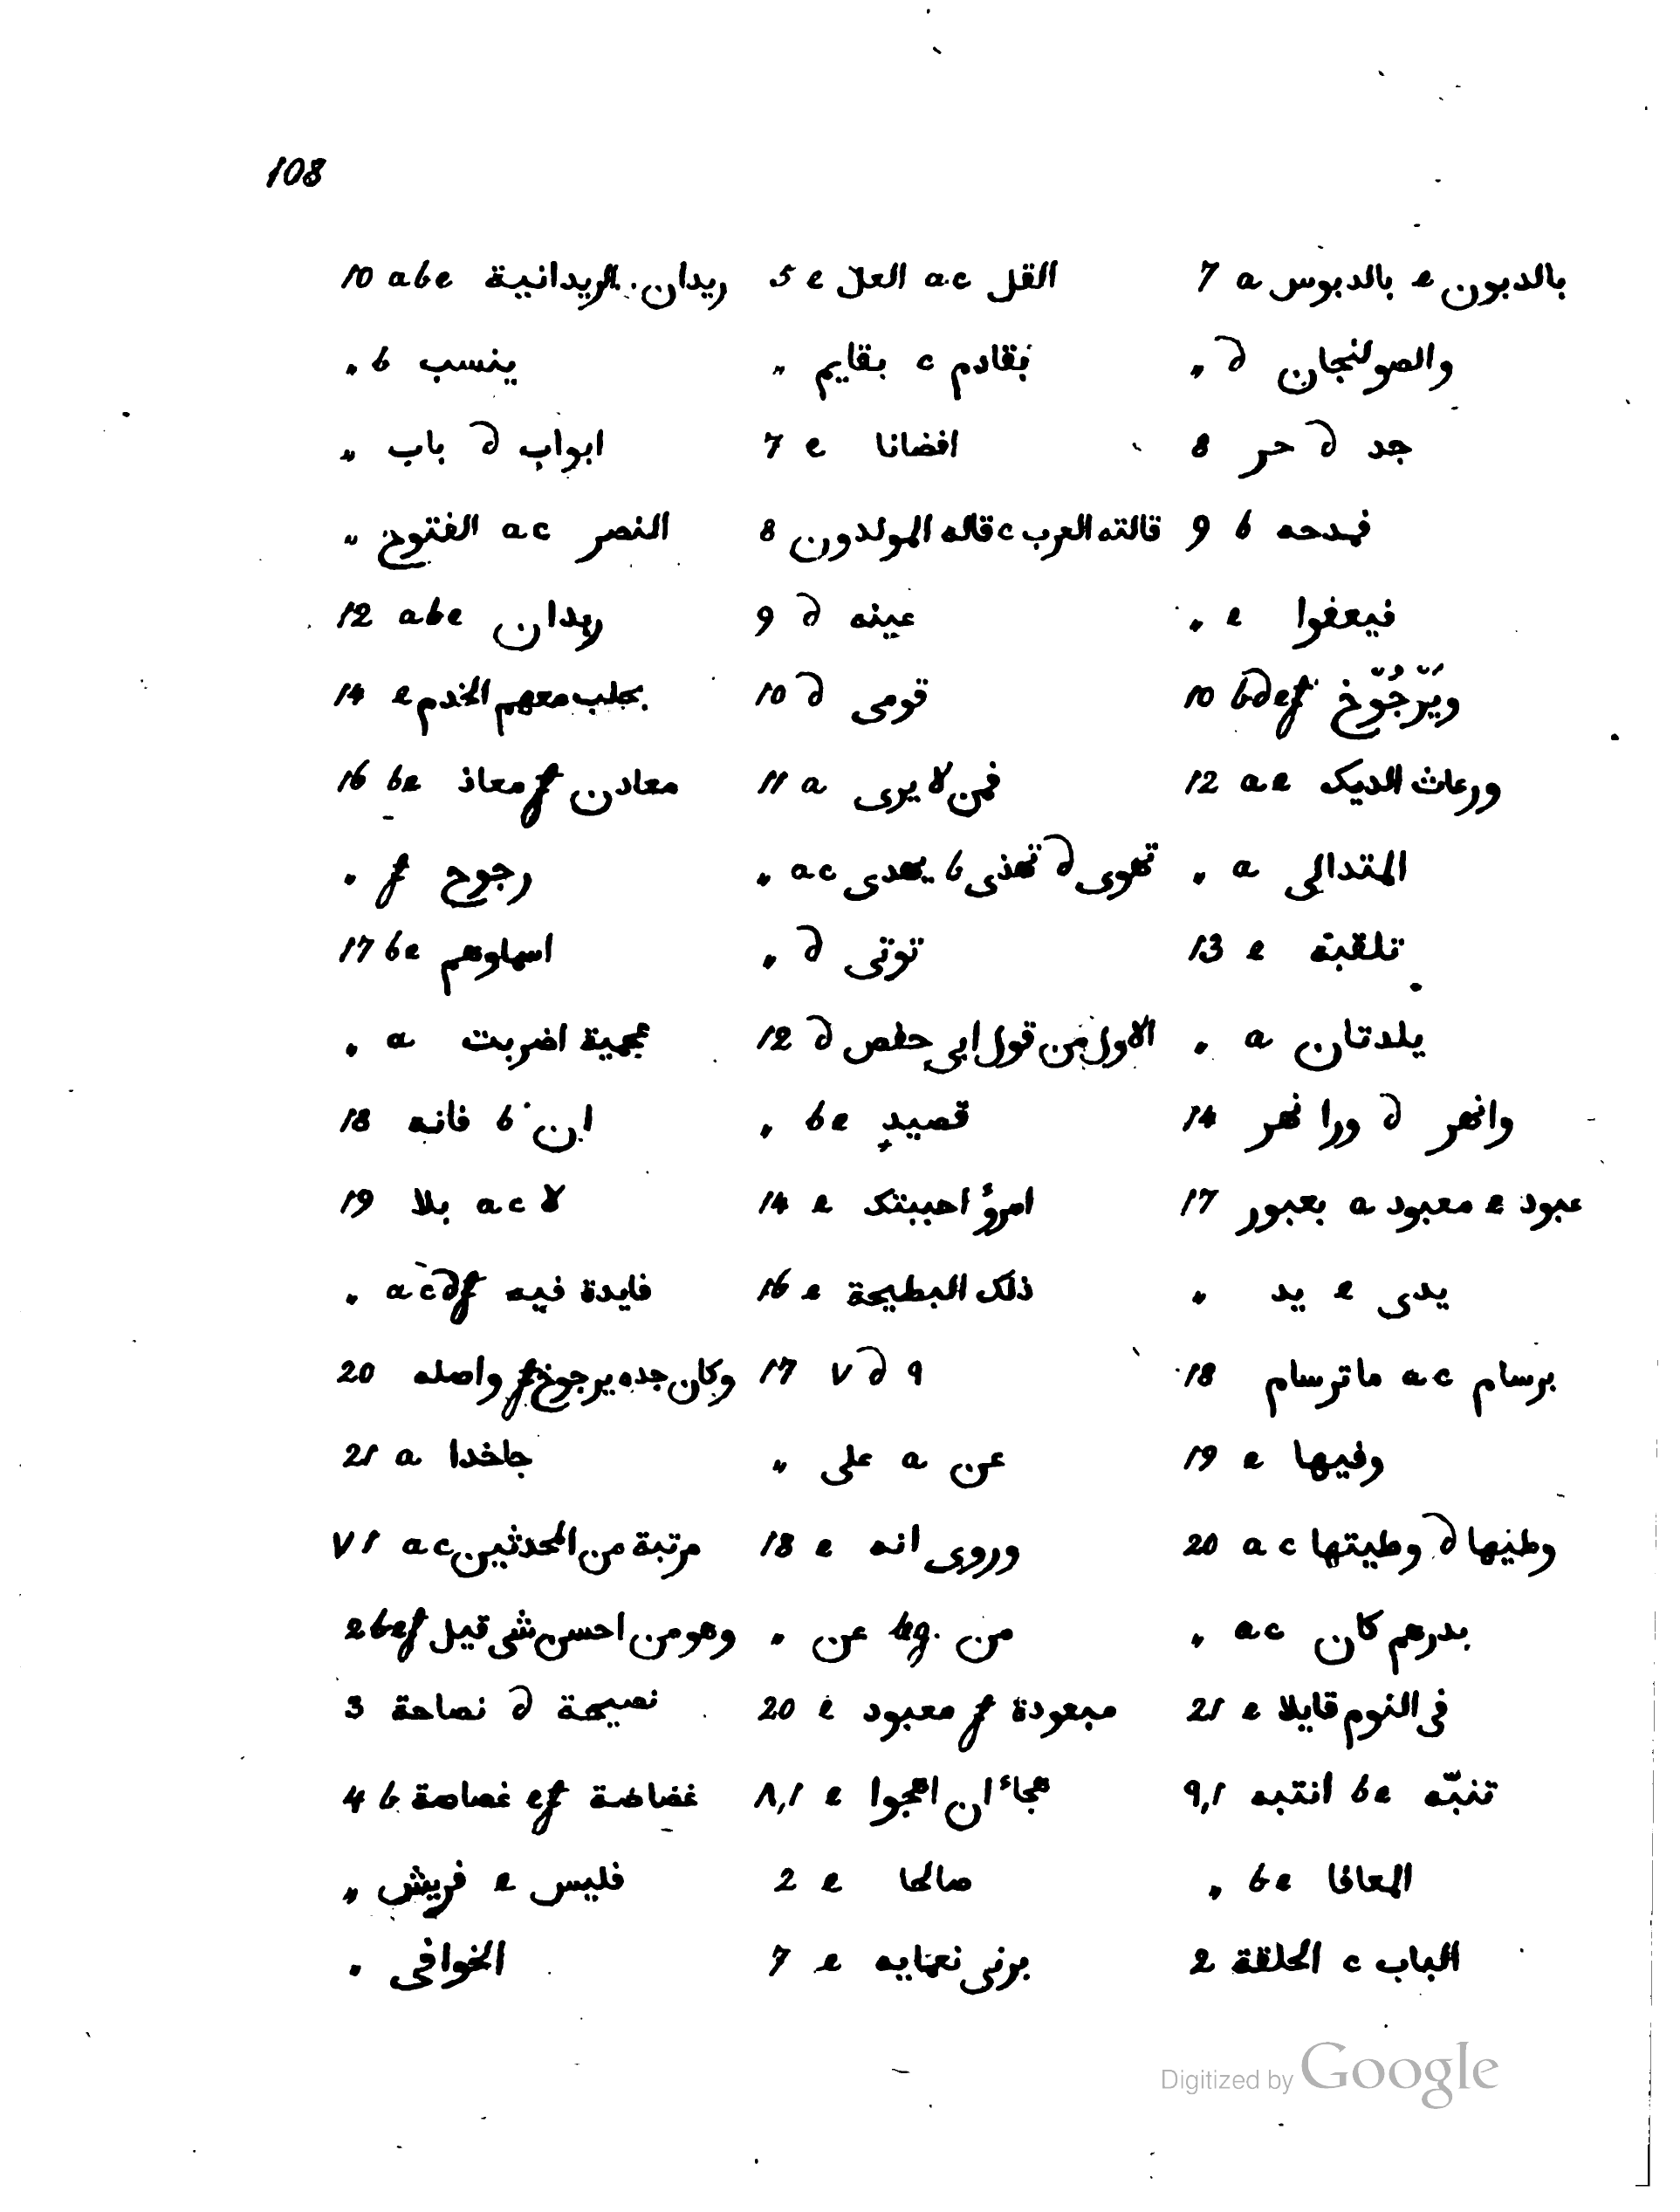 108
بالدبون e بالدبوس a 7
والصولنجان d „
جد d حر 8
فمدحه b 9
فيعفوا e „
ويَّرجُوّخ bdef 10
ورعاث الديك ae 12
المتدالى a „
تلقبة e 13
يلدتان a „
وانهر d ورا نهر 14
عبود e معبود a بعبور 17
يدى e يد „
برسام ac ماترسام 18
وفيها e 19
وطنيها d وطيتها ac 20
بدرهم كان ac „
فى النوم قايلا e 21
تنبّه be انتبه 9,1
المعافا be „
الباب c الحلقة 2
القل ac العل e 5
بقادم c بقايم „
افضانا e 7
قالته العرب c قاله المولدون 8
عينه d 9
قومى d 10
فمن لا يرى a 11
تهوى d تهذى b يهدى ac „
توتى d „
الاول من قول ابى حفص d 12
قصيد be „
امرؤ احببتك e 14
ذلك البطيحة e 16
٩ d ٧ 17
عن a على „
وروى انه e 18
من bg. عن „
مبعودة f معبود e 20
هجاء ان اهجوا e ٨,1
صالحا e 2
برنى نعمايه e 7
ريدان. الريدانية abe 10
ينسب b „
ابواب d باب „
النصر ac الفتوح „
ريدان abe 12
بجلب معهم الخدم e 14
معادن f معاذ be 16
رجوح f „
اسماوهم be 17
عجمية اضربت a „
ابن b فانه 18
لا ac بلا 19
فايدة فيه acdf „
وكان جده يرجوخ f واصله 20
جاخدا a 21
مرتبة من المحدثين ac ٧ 1
وهو من احسن شى قيل bef 2
نصيحة d نصاحة 3
غضاضة ef غصاصة b 4
فليس e فريش „
الخوافى „
Digitized by Google